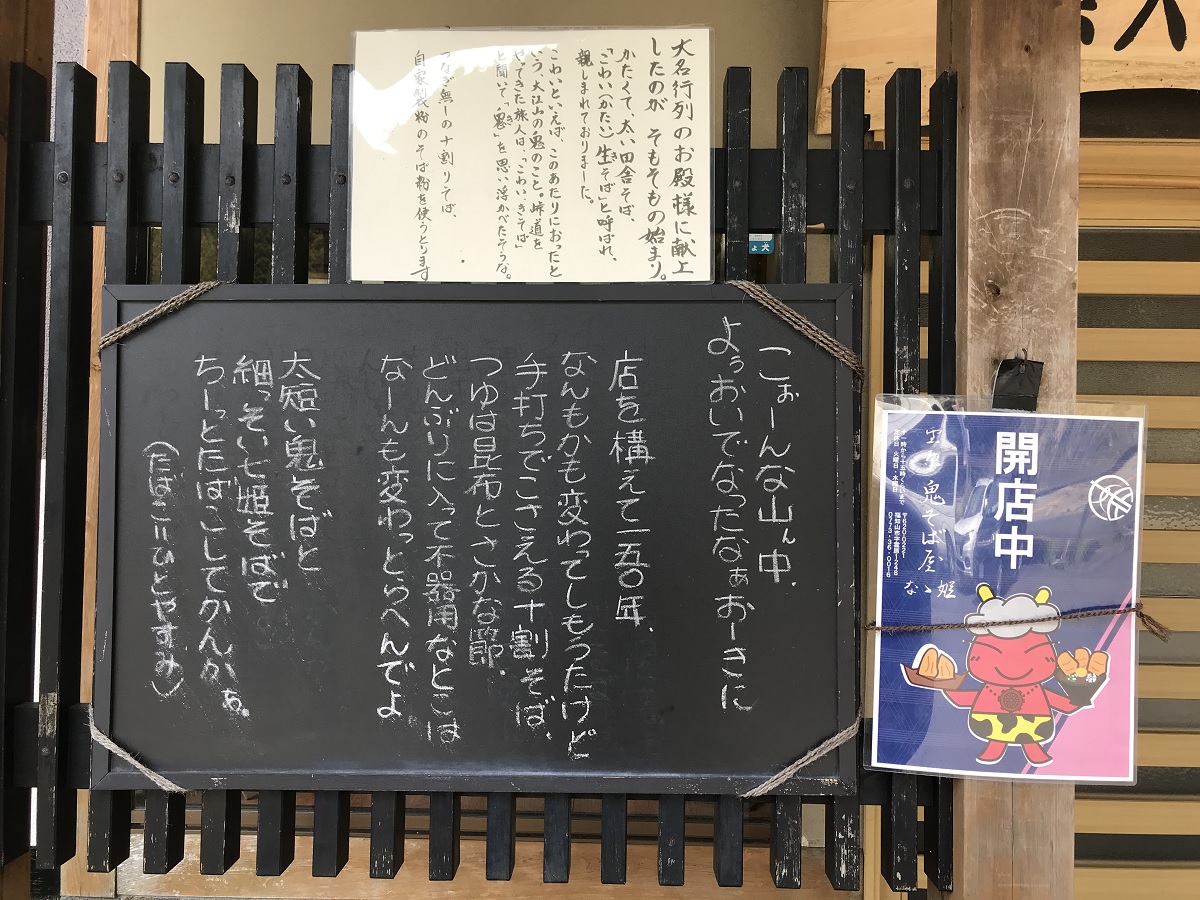 大名行列のお殿様に献上
したのが そもそもの始まり。
かたくて、太い田舎そば、
「こわい(かたい)生そば」と呼ばれ、
き
親しまれておりました。
こわいといえば、このあたりにおったと
いう、大江山の鬼のこと。峠道を
やってきた旅人は、「こわい、きそば」
と聞いて「鬼」を思い浮かべたそうな。
き
つなぎ無しの十割りそば、
自家製粉のそば粉を使うとります
こぉーんな山ん中、
ようおいでなったなぁおーきに
店を構えて一五〇年、
なんもかも変わってしもうたけど
手打ちでこさえる十割そば、
つゆは昆布とさかな節、
どんぶりに入って不器用なとこは
なーんも変わっとらへんでよ
太短い鬼そばと
細っそい七姫そばで
ちーっとたばこしてかんかぁ。
(たばこ=ひとやすみ)
開店中
鬼そば屋
なゝ姫
十一時から十五時くらいまで
定休日 火曜日・水曜日
〒620-0221
0773-36-0016